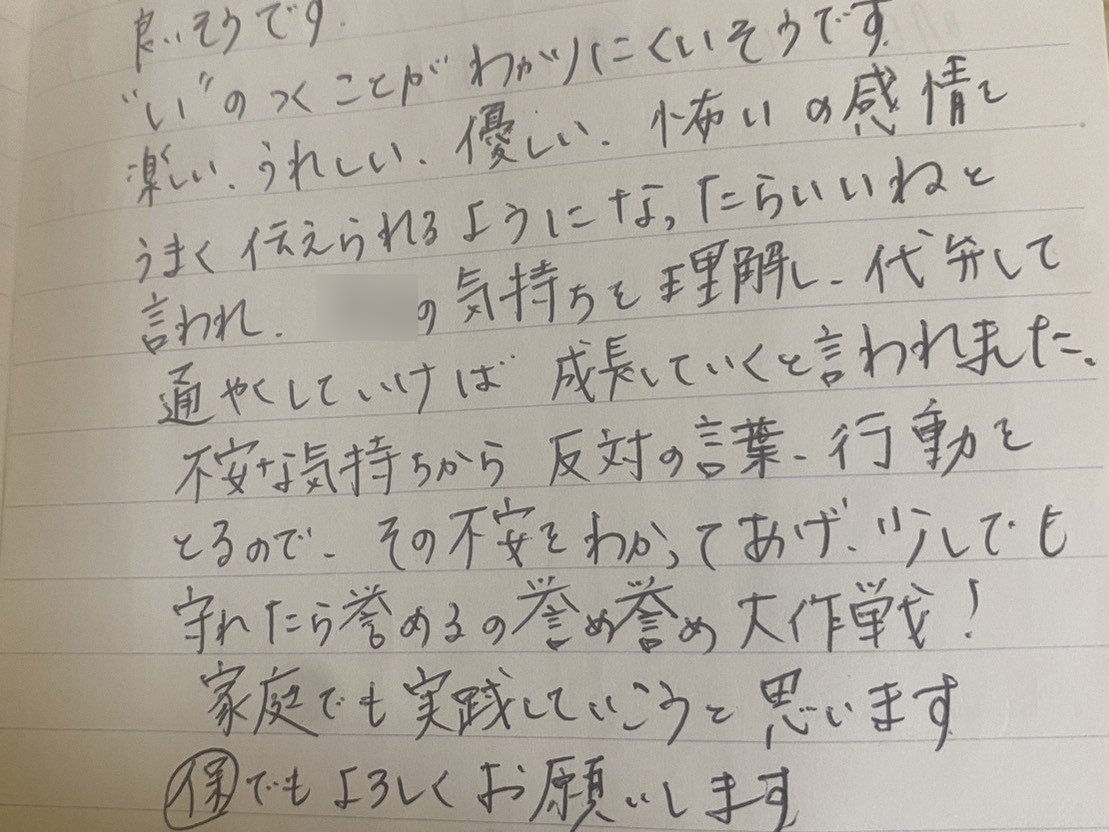 良いそうです。
"い"のつくことがわかりにくいそうです。
楽しい、うれしい、優しい、怖いの感情を
うまく伝えられるようになったらいいねと
言われ、の気持ちを理解し、代弁して
通やくしていけば成長していくと言われました。
不安な気持ちから反対の言葉、行動を
とるので、その不安をわかってあげ、少しでも
守れたら誉めるの誉め誉め大作戦!
家庭でも実践していこうと思います
保でもよろしくお願いします